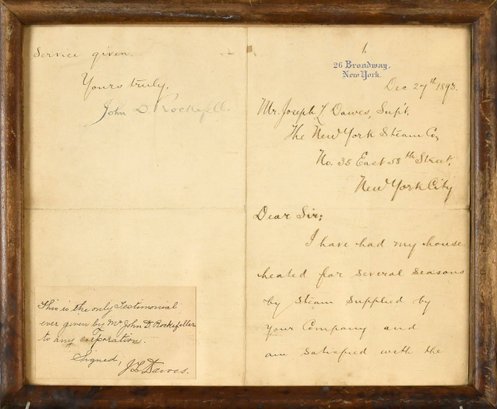 26 Broadway,
New York.
Dec 27th 1893.
Mr. Joseph L Dawes, Supt.
The New York Steam Co,
No. 35 East 58th Street,
New York City
Dear Sir;
I have had my house
heated for several seasons
by Steam supplied by
your Company and
am satisfied with the
Service given.
Yours truly,
John D Rockefeller
This is the only Testimonial
ever given by Mr John D. Rockefeller
to any corporation.
Signed,
J L Dawes.